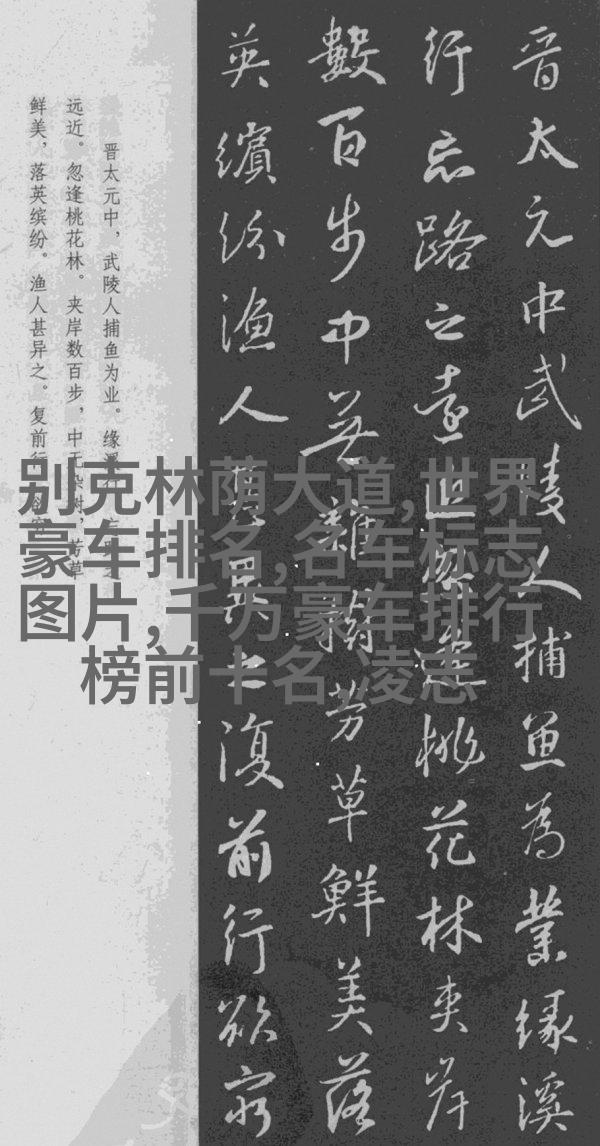 晋太元中武陵人捕魚為業緣溪
行忘路之遠近忽逢桃花林夾岸
數百步中無雜樹芳草鮮美落
英繽紛漁人甚異之復前行欲窮
晋太元中，武陵人捕鱼为业。缘溪行，忘路之
远近。忽逢桃花林。夹岸数百步，中无杂树，芳草
鲜美，落英缤纷。渔人甚异之。复前行，
别克林荫大道,世界
豪车排名,名车标志
图片,千万豪车排行
榜前十名,凌志